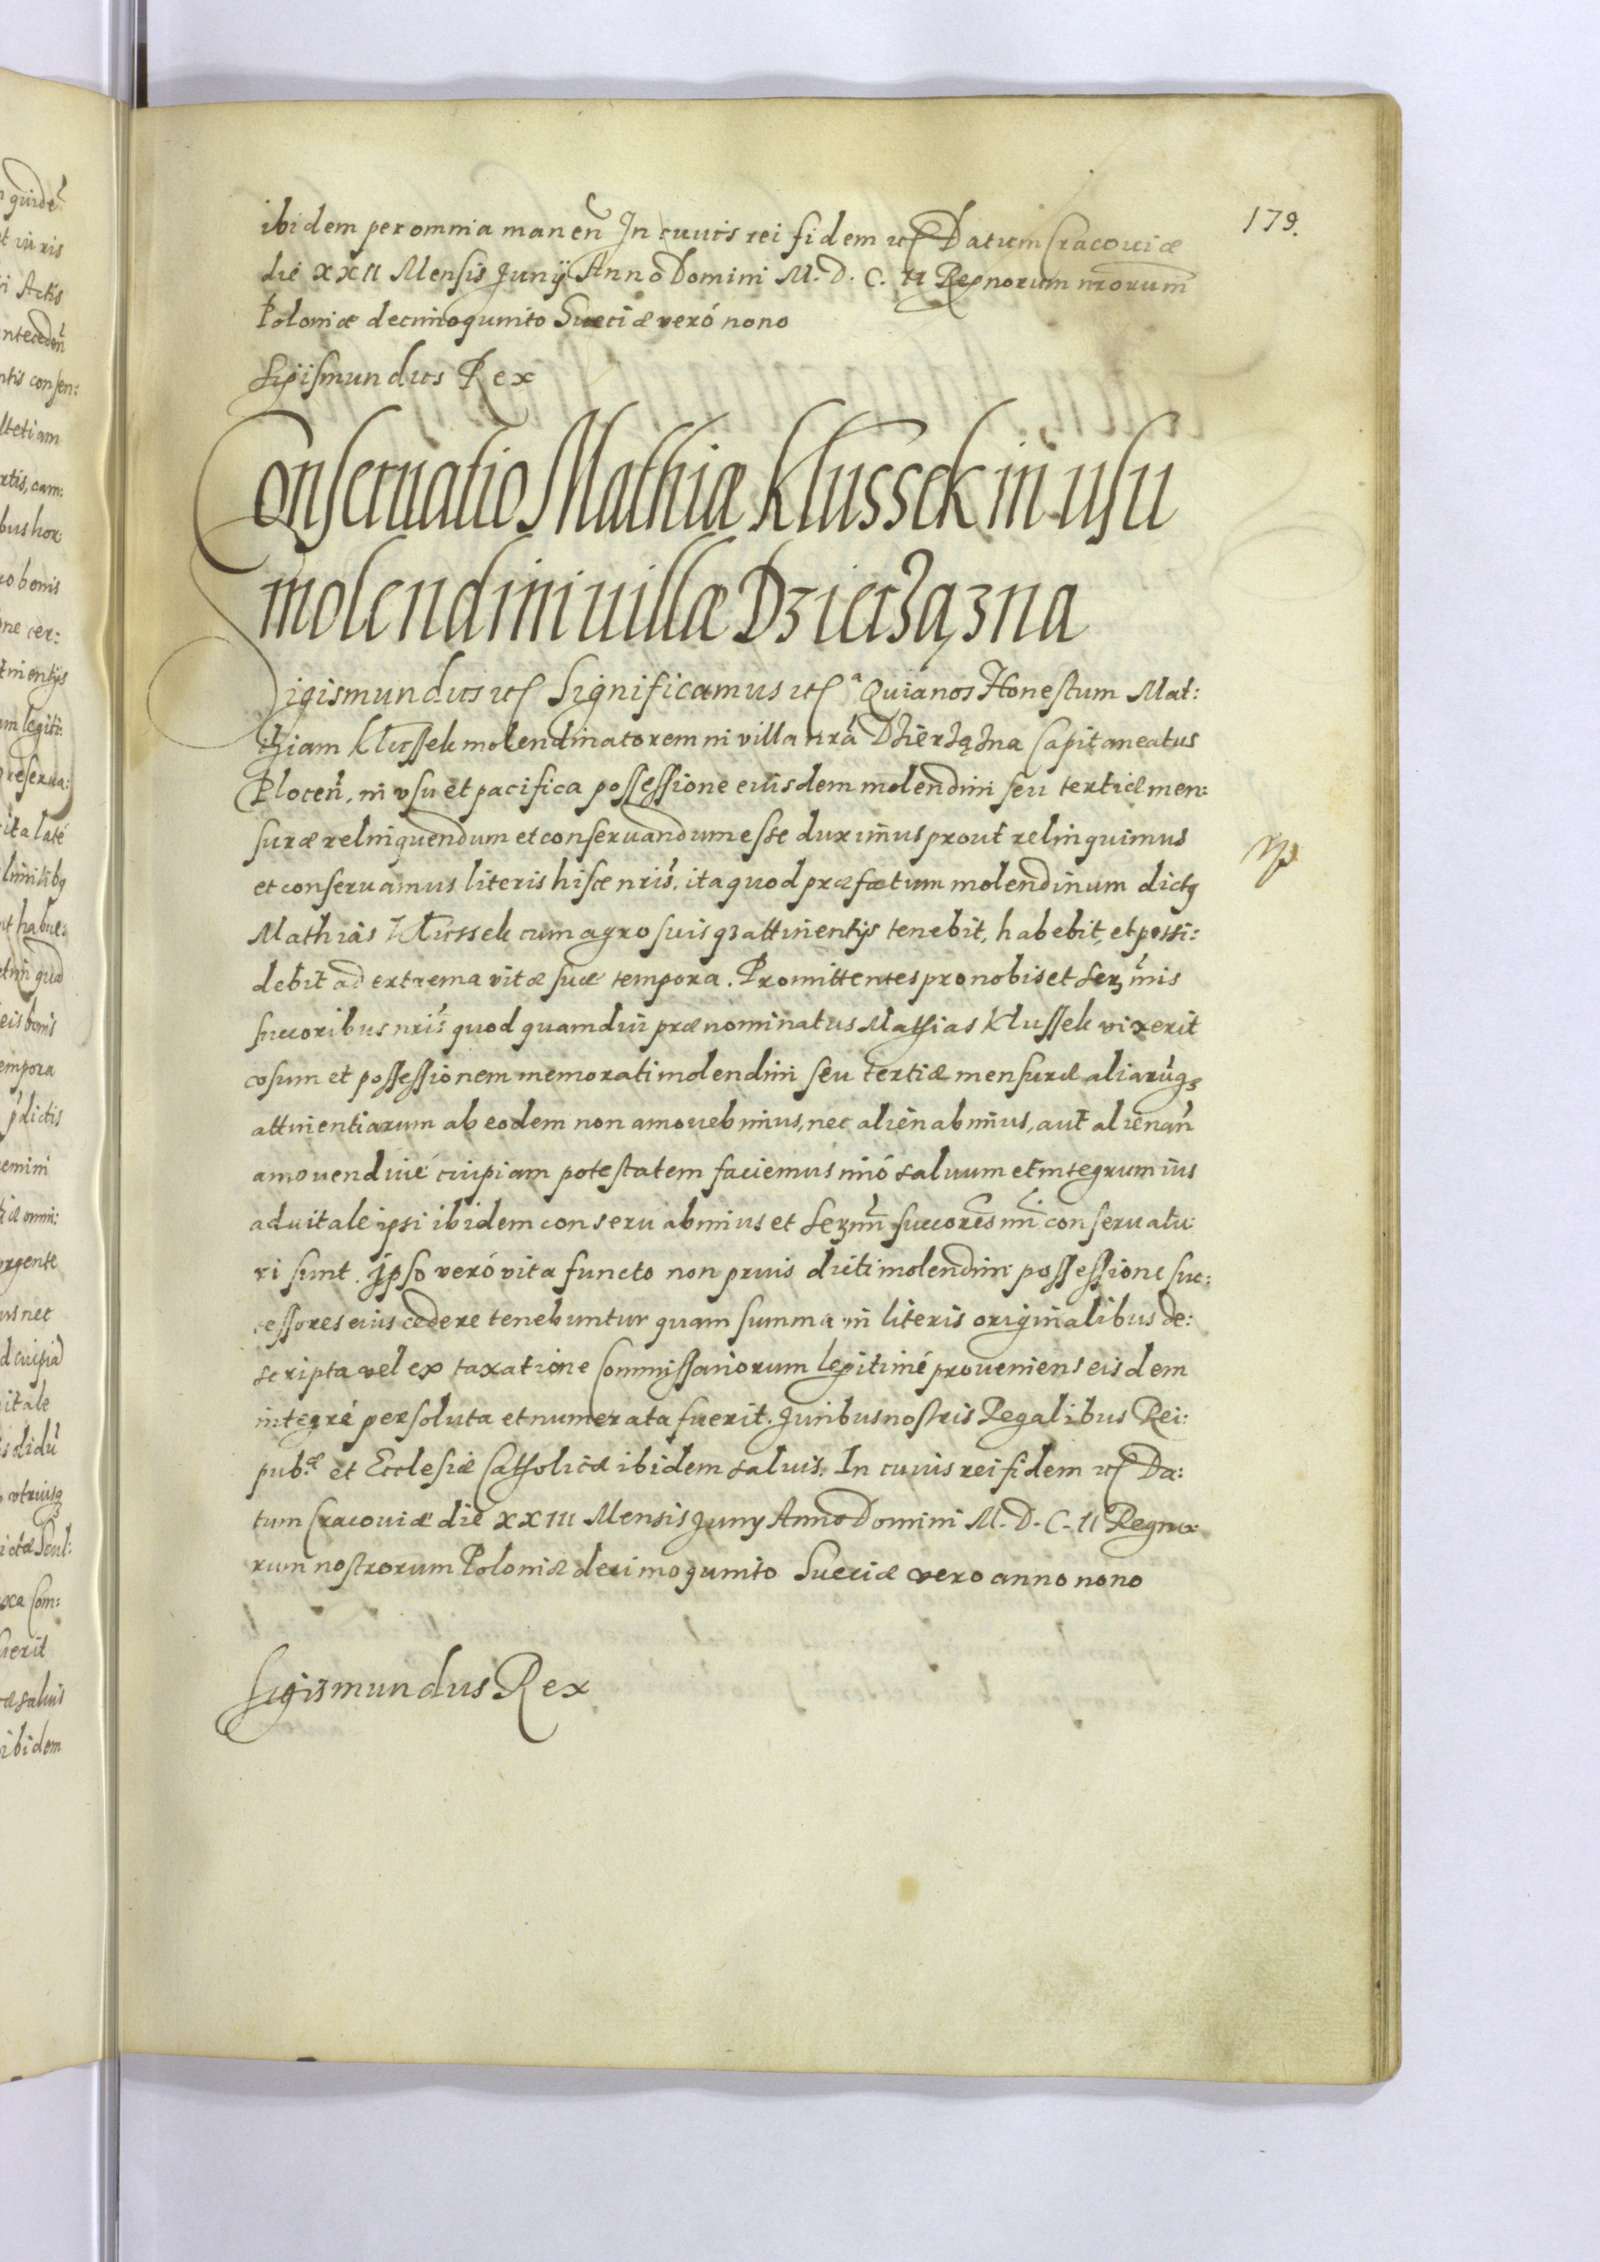 179.
ibidem per omnia manen̄ In cuius rei fidem etc Datum Cracouiæ
die XXII Mensis Junÿ Anno Domini M.D.C.II Regnorum nrorum
Poloniæ decimoquinto Sueciæ veró nono
Sigismundus Rex
Conseruatio Mathiæ Klussek in usu
molendini uillæ Dzierżązna
Sigismundus etc Significamus etc a Quia nos Honestum Mat:
thiam Klussek molendinatorem in villa nrá Dzierżązna Capitaneatus
Plocen̄, in vsu et pacifica possessione eiusdem molendini seu tertiæ men:
suræ relinquendum et conseruandum esse duximus prout relinquimus
et conseruamus literis hisce nris, ita quod præfatum molendinum dictq
Mathias Klussek cum agro suisqз attinentÿs tenebit, habebit, et possi:
debit ad extrema vitæ suæ tempora. Promittentes pro nobis et Serз mis
succoribus nris quod quamdiu prænominatus Mathias Klussek vixerit
vsum et possessionem memorati molendini seu tertiæ mensuræ aliarūqз
attinentiarum ab eodem non amouebimus, nec alienabimus, aut alienan̄
amouendiué cuipiam potestatem faciemus imó saluum et integrum ius
aduitale ipsi ibidem conseruabimus et Serзmi succores nri conseruatu
ri sunt. Ipso veró vita functo non prius dicti molendini possessione suc:
cessores eius cedere tenebuntur quam summa in literis originalibus de:
scripta vel ex taxatione Commissariorum legitimé proueniens eisdem
integré persoluta et numerata fuerit. Juribus nostris Regalibus Rei:
pub.æ et Ecclesiæ Catholicæ ibidem saluis. In cuius rei fidem etc Da:
tum Cracouiæ die XXIII Mensis Juny Anno Domini M.D.C.II Regno
rum nostrorum Poloniæ decimoquinto Sueciæ vero anno nono
Sigismundus Rex